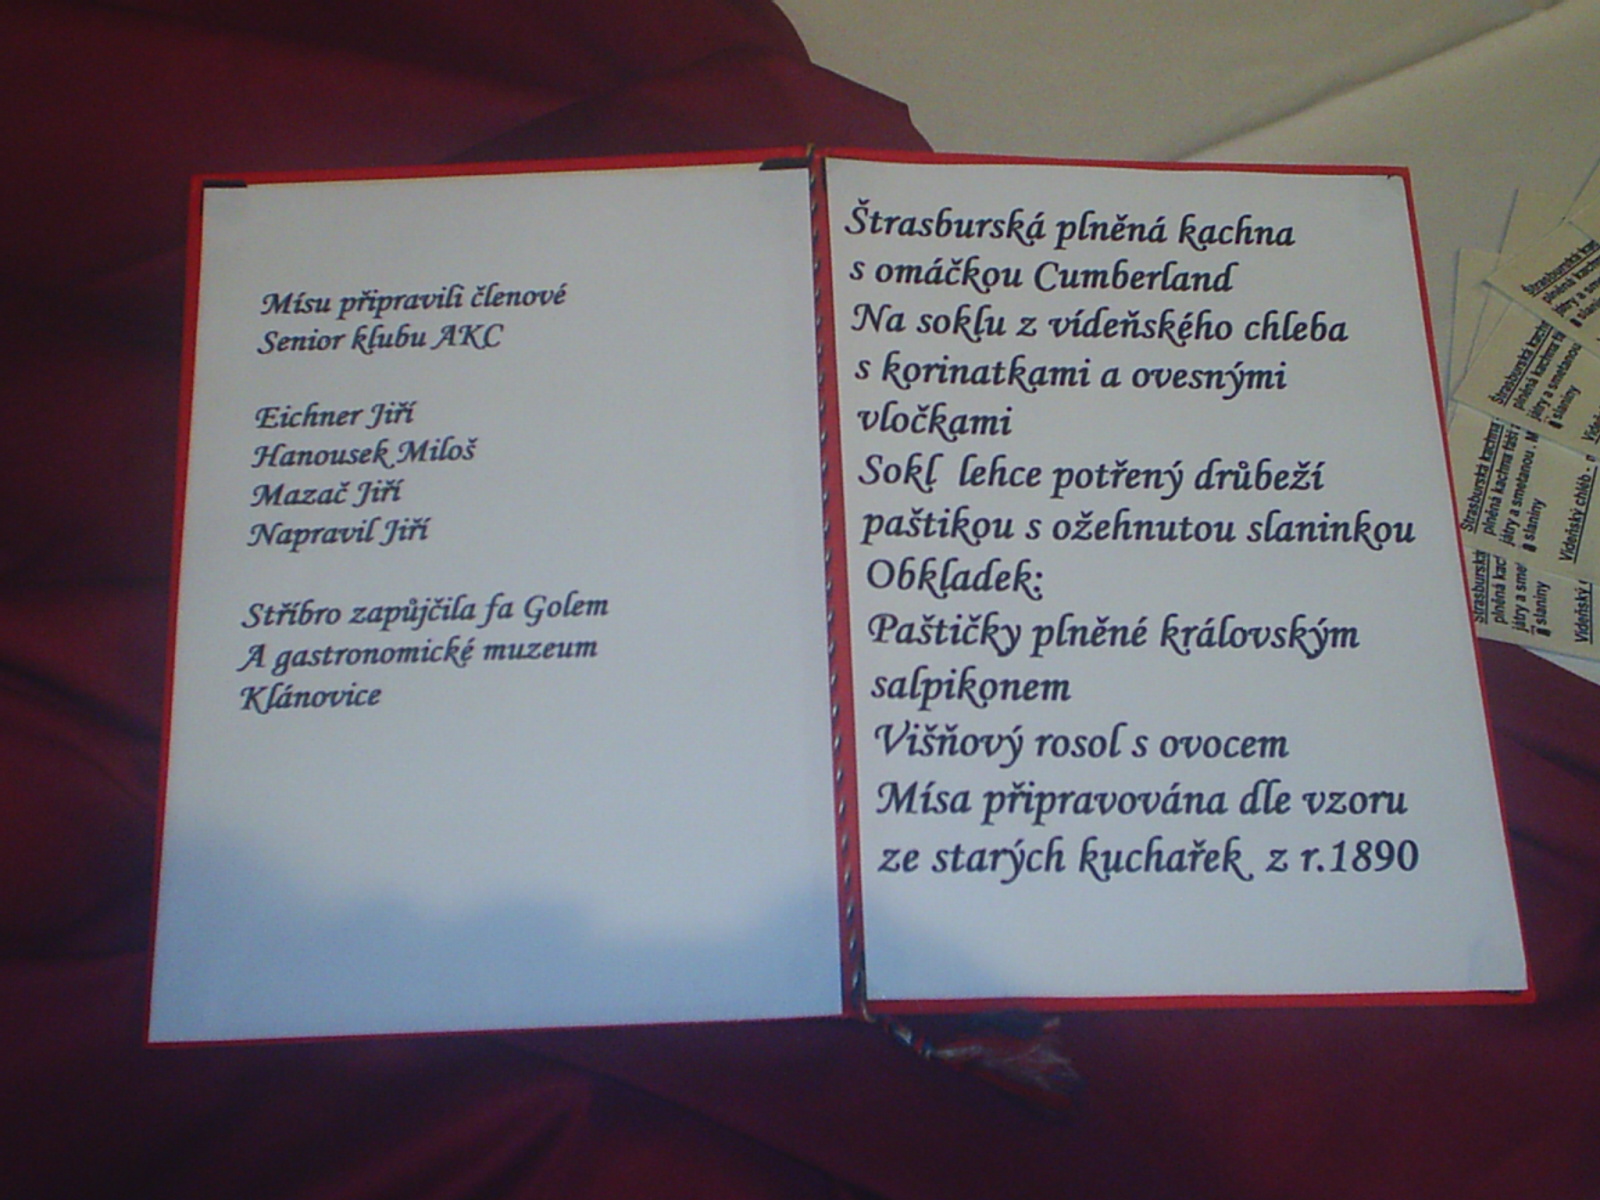 Mísu připravili členové
Senior klubu AKC
Eichner Jiří
Hanousek Miloš
Mazač Jiří
Napravil Jiří
Stříbro zapůjčila fa Golem
A gastronomické muzeum
Klánovice
Štrasburská plněná kachna
s omáčkou Cumberland
Na soklu z vídeňského chleba
s korinatkami a ovesnými
vločkami
Sokl lehce potřený drůbeží
paštikou s ožehnutou slaninkou
Obkladek:
Paštičky plněné královským
salpikonem
Višňový rosol s ovocem
Mísa připravována dle vzoru
ze starých kuchařek z r.1890
Štrasburská
plněná kachna
játry a
slaniny
Štrasburská kachna
plněná kachna
játry a smetanou
slaniny
Štrasburská kachna
plněná kachna
játry a smetanou . M
slaniny
Vídeňský chléb -
Štrasburská
plněná
játry a
slaniny
Vídeňský